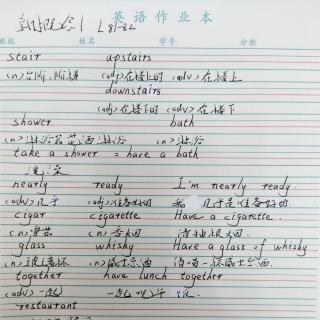 新概念1 L81-82
英语作业本
班级 姓名 学号 分数
stair upstairs
(n)台阶,阶梯 (adj)在楼上的 (adv)在楼上
downstairs
(adj)在楼下的 (adv)在楼下
shower bath
(n) 淋浴 (n)
take a shower = have a bath
洗澡
nearly ready I'm nearly ready.
(adv)几乎 (adj)准备好的 我几乎是准备好的
cigar cigarette Have a cigarette.
(n)雪茄 (n)香烟 请抽根烟.
glass whisky Have a glass of whisky
(n)玻璃杯 (n)威士忌酒 请喝一杯威士忌酒.
together have lunch together
(adv)一起 一起吃午饭.
restaurant